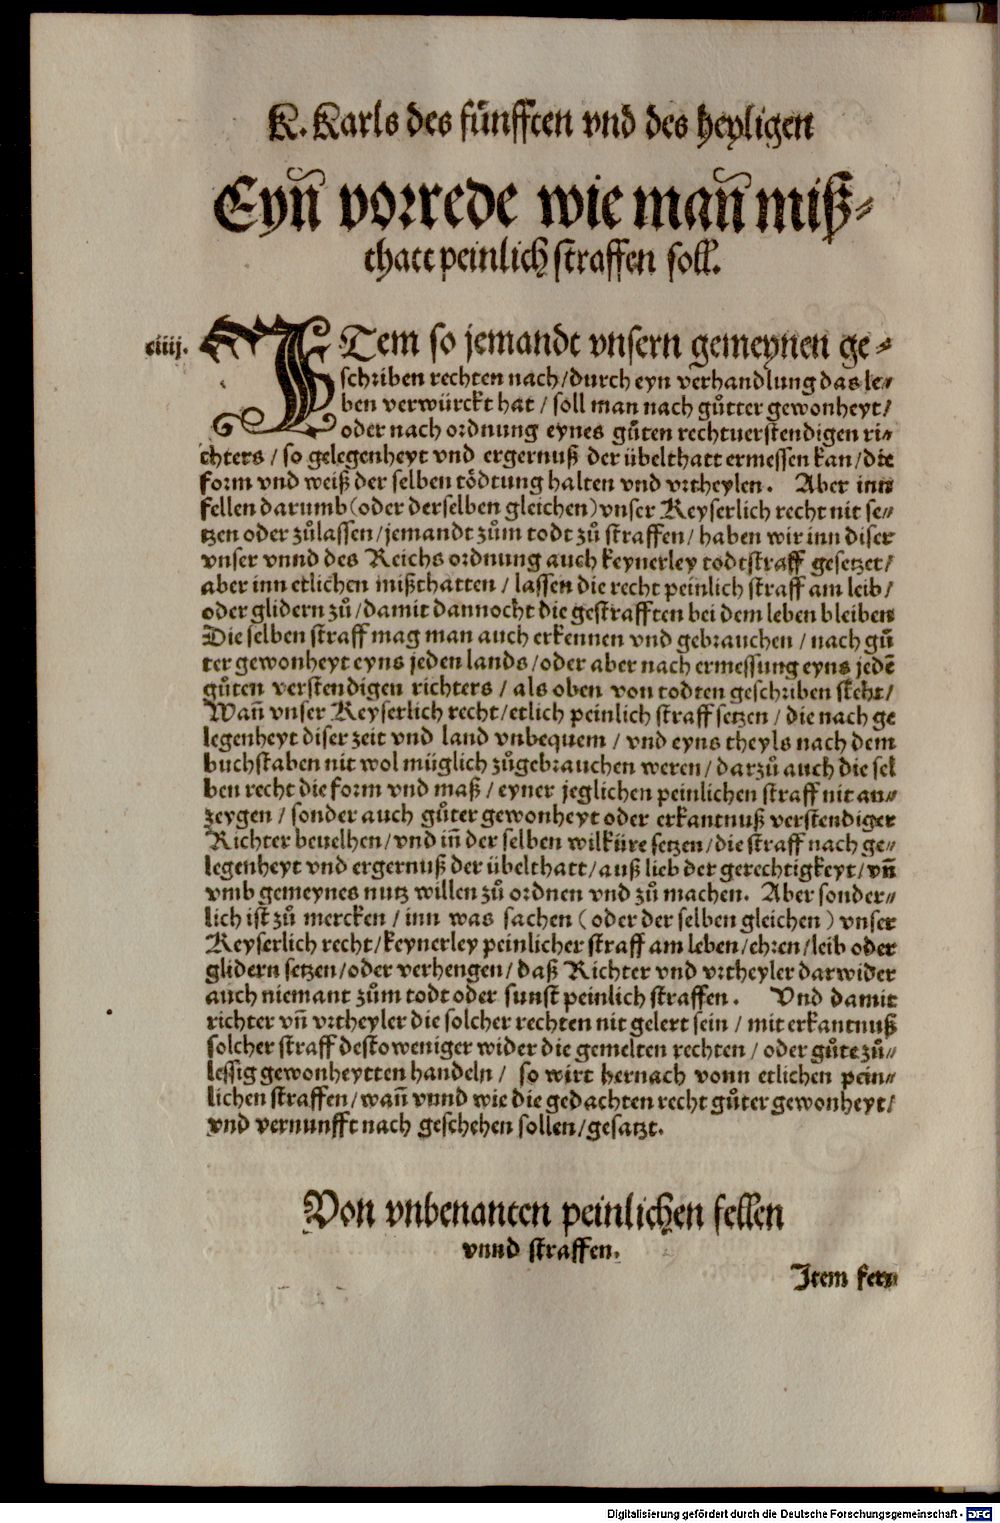 K. Karls des fünfften vnd des heyligen
Eyn̄ vorrede wie man̄ miß⸗
thatt peinlich straffen soll.
ciiij. ITem so jemandt vnsern gemeynen ge⸗
schriben rechten nach/durch eyn verhandlung das le⸗
ben verwürckt hat / soll man nach gůtter gewonheyt/
oder nach ordnung eynes gůten rechtuerstendigen ri⸗
chters / so gelegenheyt vnd ergernuß der übelthatt ermessen kan/die
form vnd weiß der selben tödtung halten vnd vrtheylen. Aber inn
fellen darumb(oder derselben gleichen)vnser Keyserlich recht nit se⸗
tzen oder zůlassen/jemandt zům todt zů straffen/haben wir inn diser
vnser vnnd des Reichs ordnung auch keynerley todtstraff gesetzet/
aber inn etlichen mißthatten / lassen die recht peinlich straff am leib/
oder glidern zů/damit dannocht die gestrafften bei dem leben bleiben
Die selben straff mag man auch erkennen vnd gebrauchen / nach gů
ter gewonheyt eyns jeden lands/oder aber nach ermessung eyns jedē
gůten verstendigen richters / als oben von todten geschriben steht/
Wan̄ vnser Keyserlich recht/etlich peinlich straff setzen / die nach ge
legenheyt diser zeit vnd land vnbequem / vnd eyns theyls nach dem
buchstaben nit wol müglich zůgebrauchen weren/darzů auch die sel
ben recht die form vnd maß / eyner jeglichen peinlichen straff nit an⸗
zeygen / sonder auch gůter gewonheyt oder erkantnuß verstendiger
Richter beuelhen/vnd in̄ der selben wilküre setzen/die straff nach ge⸗
legenheyt vnd ergernuß der übelthatt/auß lieb der gerechtigkeyt/vn̄
vmb gemeynes nutz willen zů ordnen vnd zů machen. Aber sonder⸗
lich ist zů mercken / inn was sachen (oder der selben gleichen) vnser
Keyserlich recht/keynerley peinlicher straff am leben/ehren/leib oder
glidern setzen/oder verhengen/daß Richter vnd vrtheyler darwider
auch niemant zům todt oder sunst peinlich straffen. Vnd damit
richter vn̄ vrtheyler die solcher rechten nit gelert sein / mit erkantnuß
solcher straff destoweniger wider die gemelten rechten / oder gůte zů⸗
lessig gewonheytten handeln / so wirt hernach vonn etlichen pein⸗
lichen straffen/wan̄ vnnd wie die gedachten recht gůter gewonheyt/
vnd vernunfft nach geschehen sollen/gesatzt.
Von vnbenanten peinlichen fellen
vnnd straffen.
Item fer⸗
Digitalisierung gefördert durch die Deutsche Forschungsgemeinschaft - DFG